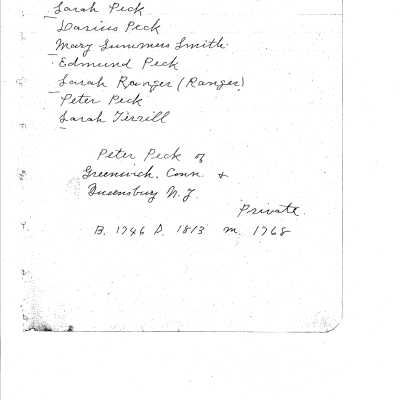 Sarah Peck
Darius Peck
Mary Summers Smith
Edmund Peck
Sarah Rounger (Ranger)
Peter Peck
Sarah Terrill
Peter Peck of
Greenwich, Conn &
Queensbury N.Y.
Private.
B. 1746 D. 1813 m. 1768